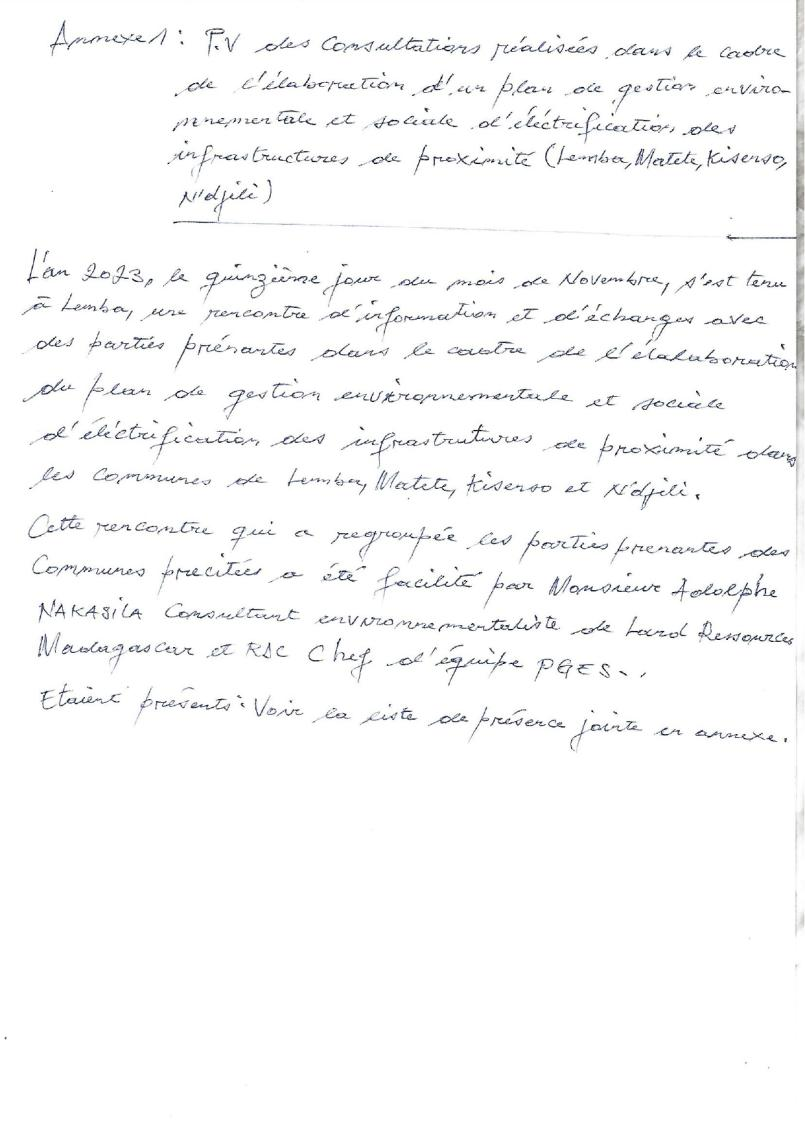 Annexe 1 : P.V des Consultations réalisées dans le cadre
de l'élaboration d'un plan de gestion enviro-
nnementale et sociale d'éléctrification des
infrastructures de proximité (Lemba, Matete, Kisenso,
N'djili)
L'an 2023, le quinzième jour du mois de Novembre, s'est tenu
à Lemba, une rencontre d'information et d'échanges avec
des parties prénantes dans le cadre de l'élaluboration
du plan de gestion environnementale et sociale
d'éléctrification des infrastrutures de proximité dans
les Communes de Lemba, Matete, Kisenso et N'djili.
Cette rencontre qui a regroupée les parties prenantes des
Communes précitées a été facilité par Monsieur Adolphe
NAKASILA Consultant environnementaliste de Land Ressources
Madagascar et RDC Chef d'équipe PGES..
Etaient présents : Voir la liste de présence jointe en annexe.